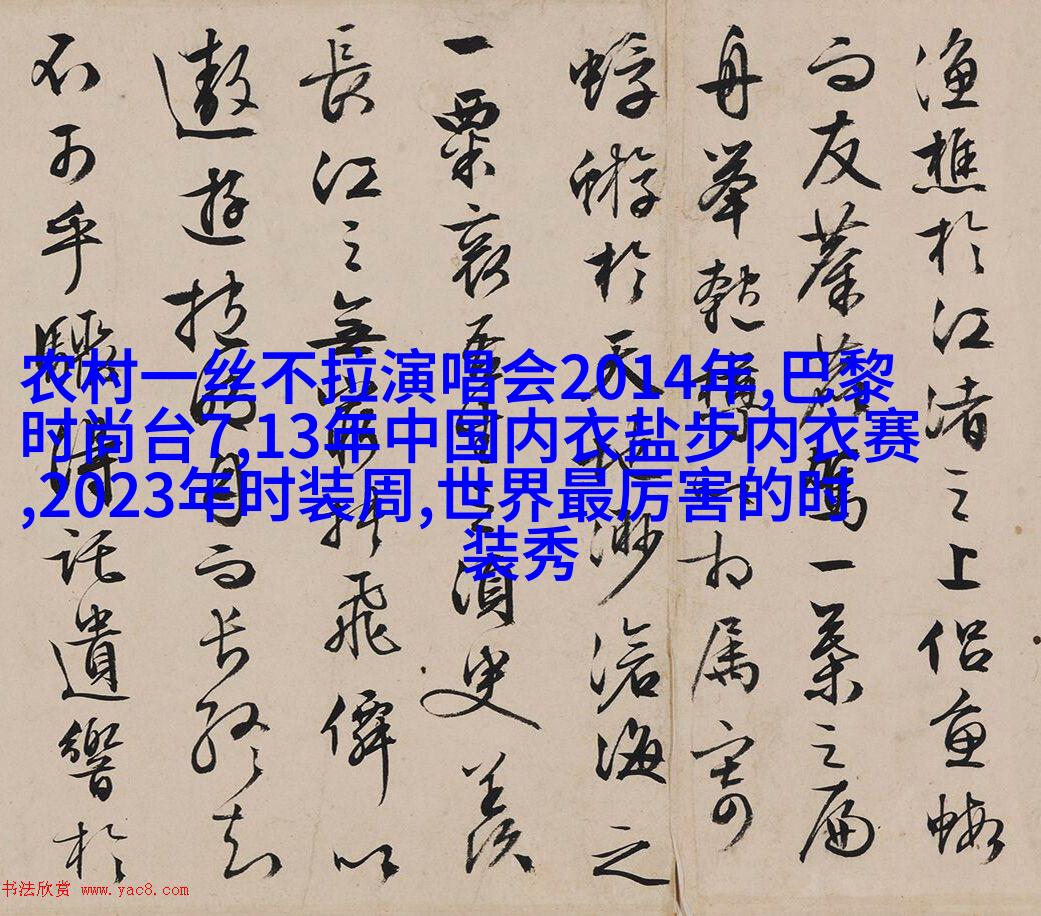 漁樵於江渚之上侣魚蝦
而友麋鹿駕一葉之扁
舟舉匏樽以相属寄
蜉蝣於天地渺滄海之
一粟哀吾生之須臾羨
長江之無窮挾飛僊以
遨遊抱明月而長終知
不可乎驟得託遺響於
农村一丝不拉演唱会2014年,巴黎
时尚台7,13年中国内衣盐步内衣赛
,2023年时装周,世界最厉害的时
装秀
书法欣赏 www.yac8.com